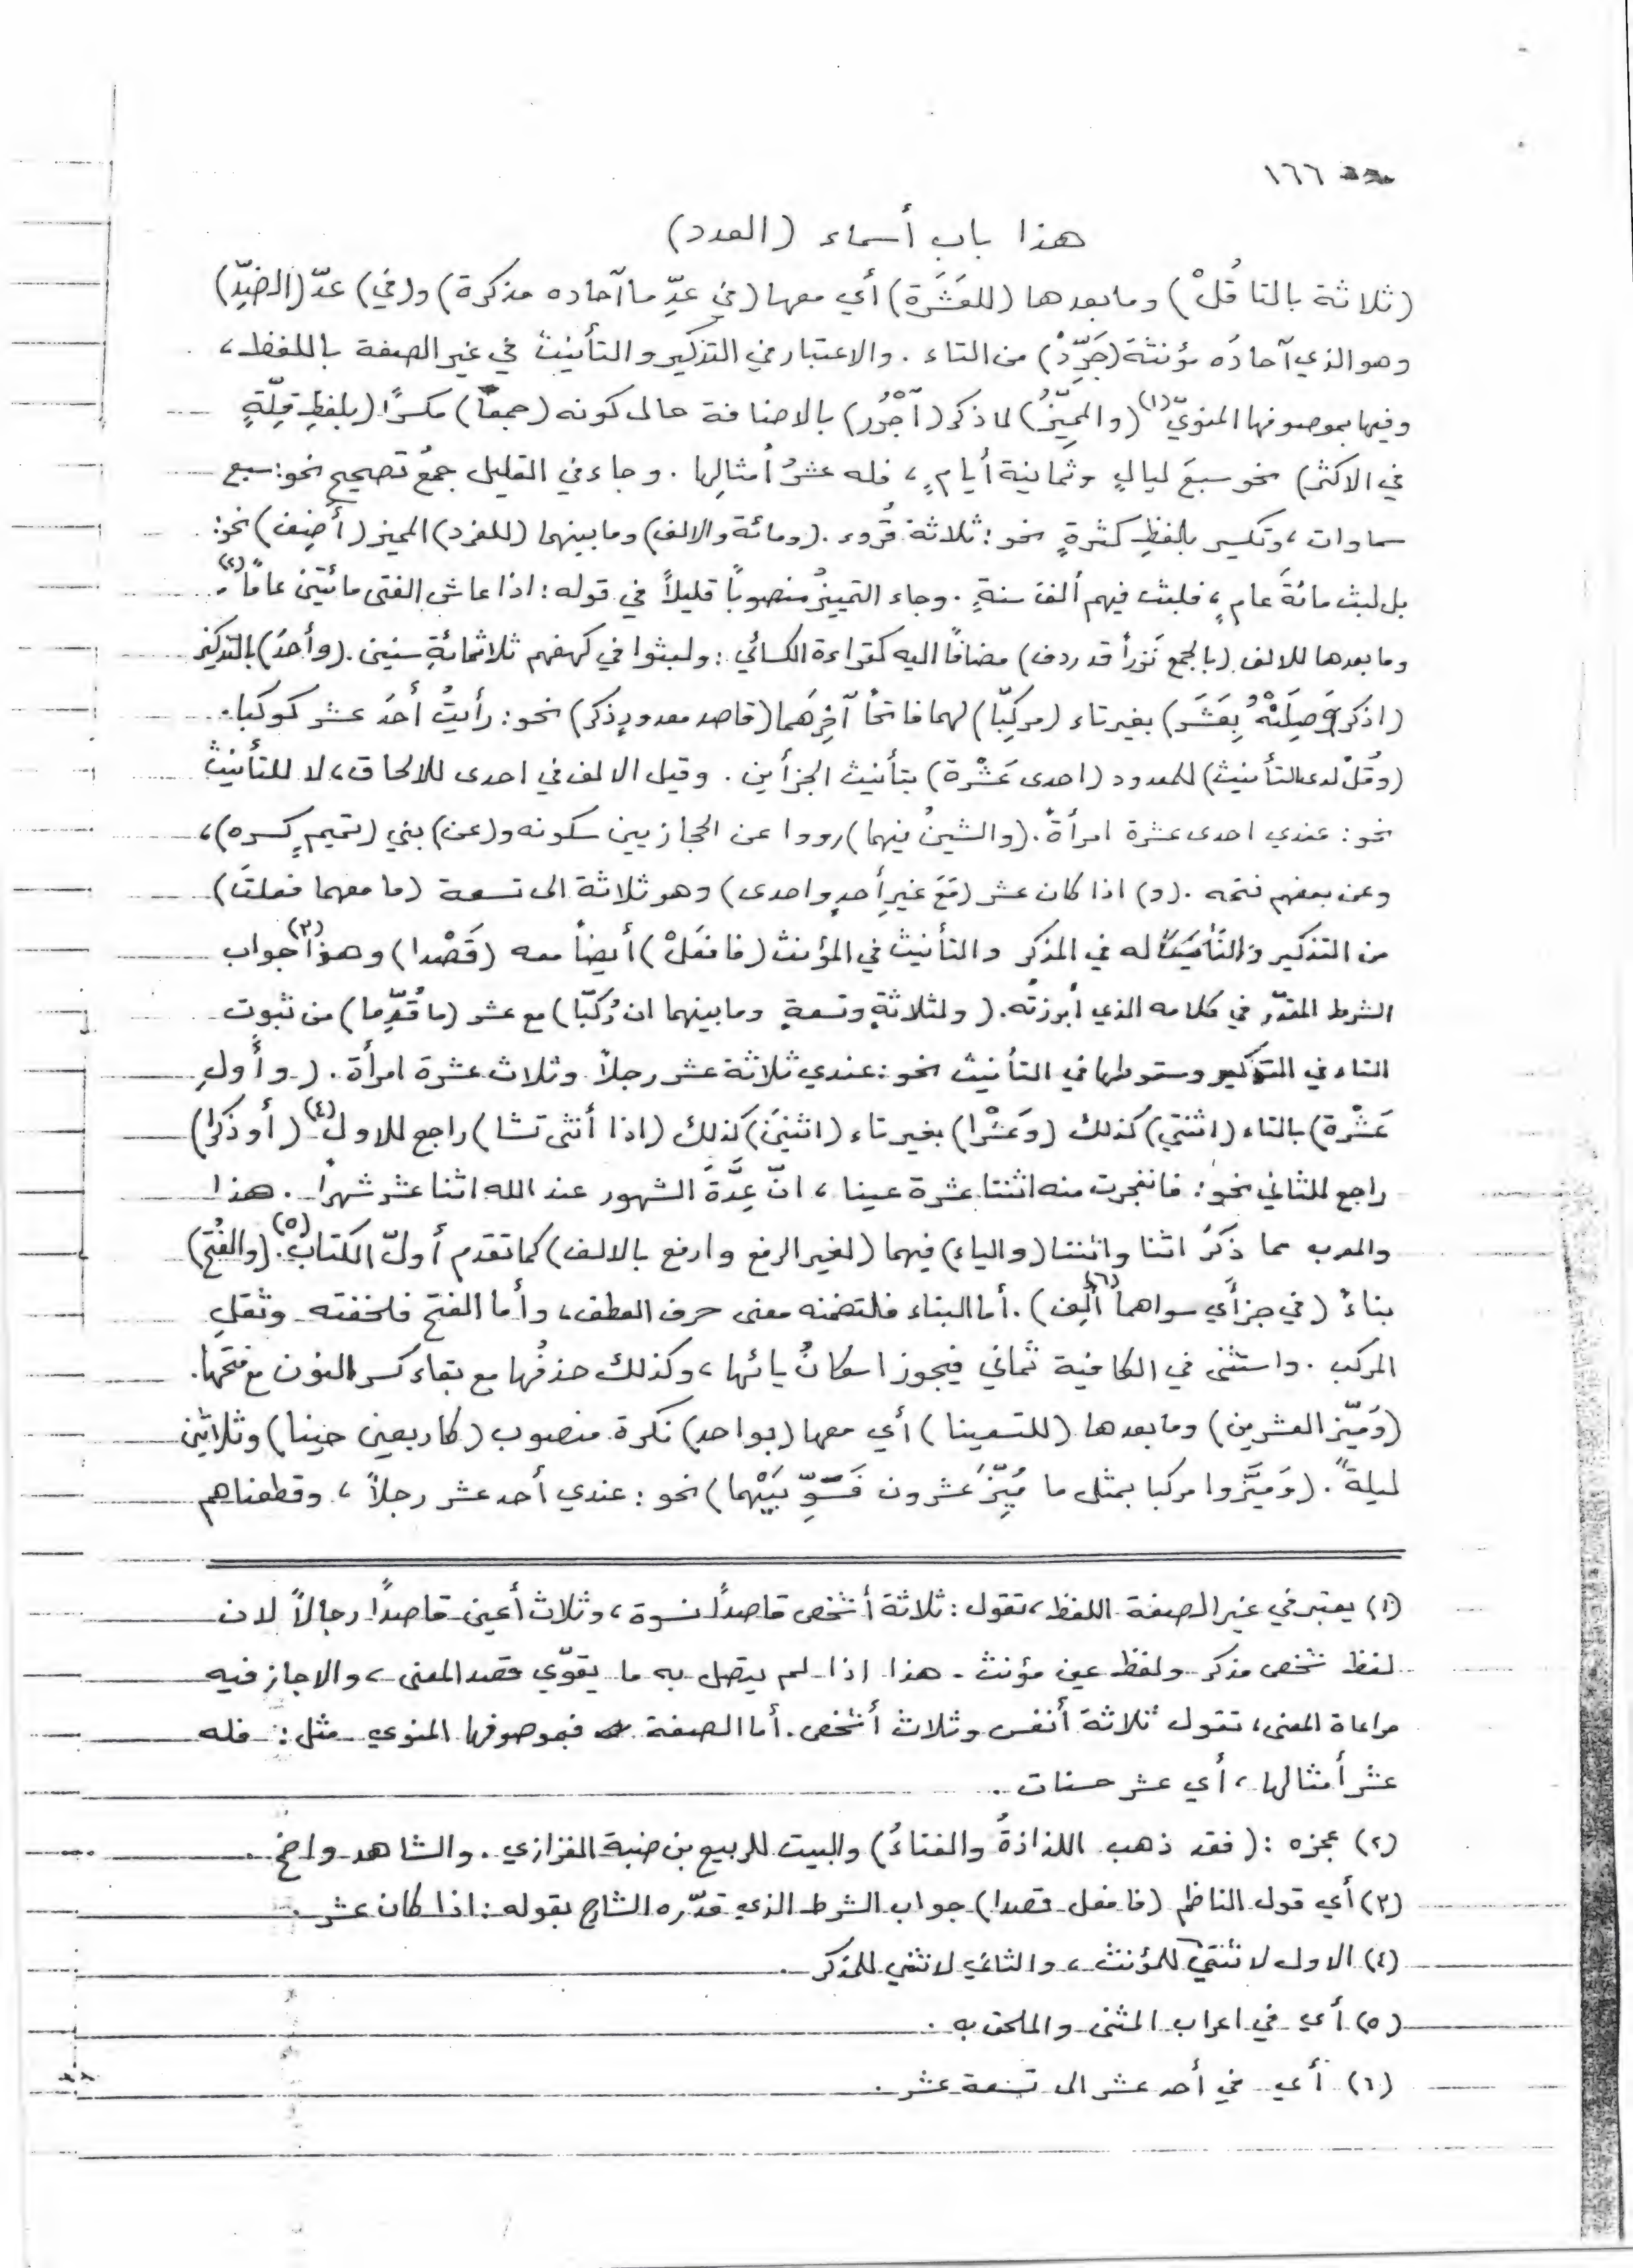 ١٦٦
هذا باب أسماء (العدد)
(ثلاثة بالتا قُلْ) وما بعدها (للعَشَرَة) أي معها (في عدِّ ما آحاده مذكرة) و(في) عدّ (الضِدِّ)
وهو الذي آحادُه مؤنثة (جَرِّدْ) من التاء . والاعتبار في التذكير والتأنيث في غير الصفة باللفظ ،
وفيها بموصوفها المنويّ (١) (والمميِّزُ) لما ذكر (آجْرُر) بالاضافة حال كونه (جمعاً) مكسرًا (بلفظِ قِلّةٍ
في الاكثر) نحو سبعَ ليالٍ وثمانية أيامٍ ، فله عشرُ أمثالِها . وجاء في القليل جمعُ تصحيح نحو: سبع
سماوات ، وتكسير بلفظِ كثرةٍ نحو : ثلاثة قُروء . (ومائة والالف) وما بينهما (للفرد) المميز (أضِف) نحو:
بل لبث مائةَ عامٍ ، فلبث فيهم ألفَ سنةٍ . وجاء التمييزُ منصوباً قليلاً في قوله : اذا عاش الفتى مائتين عاماً (٢) .
وما بعدها للالف (بالجمع نَزراً قد ردف) مضافاً اليه كقراءة الكسائي : ولبثوا في كهفهم ثلاثمائةِ سنين . (وأحدَ) بالتذكير
(اذكر وَصِلَنْهُ بِعَشَر) بغير تاء (مركِّبًا) لهما فاتحاً آخِرَهما (قاصد معدود ذكر) نحو : رأيتُ أحدَ عشر كوكبا .
(وقُلْ لدى التأنيث) للمعدود (احدى عَشْرة) بتأنيث الجزأين . وقيل الالف في احدى للالحاق ، لا للتأنيث
نحو : عندي احدى عشرة امرأةً . (والشينُ فيها) رووا عن الحجازيين سكونه و(عن) بني (تميمٍ كسره) ،
وعن بعضهم فتحه . (و) اذا كان عشر (مَعَ غيرِ أحدٍ واحدى) وهو ثلاثة الى تسعة (ما معهما فعلتَ)
من التذكير والتأنيث له في المذكر والتأنيث في المؤنث (فافعَلْ) أيضاً معه (قَصْدا) وهذا (٣) جواب
الشرط المقدّر في كلامه الذي أبرزتُه . (ولثلاثةٍ وتسعةٍ وما بينهما ان رُكِّبَا) مع عشر (ما قُدِّما) من ثبوت
التاء في التذكير وسقوطها في التأنيث نحو : عندي ثلاثة عشر رجلاً وثلاث عشرة امرأة . (وأَولِ
عَشْرة) بالتاء (اثنتي) كذلك (وعَشْرا) بغير تاء (اثنيَ) كذلك (اذا أنثى تشا) راجع للاول (٤) (أو ذكرا)
راجع للثاني نحو : فانفجرت منه اثنتا عشرة عينا ، انّ عِدَّةَ الشهور عند الله اثنا عشر شهراً . هذا
والمعرب مما ذكرَ اثنا واثنتا (والياء) فيهما (لغير الرفع وارفع بالالف) كما تقدم أولَ الكتاب (٥) . (والفتحُ)
بناءً (في جزأَي سواهما (٦) أُلِف) . أما البناء فلتضمنه معنى حرف العطف ، وأما الفتح فلخفته وثقلِ
المركب . واستثنى في الكافية ثماني فيجوز اسكانُ يائها ، وكذلك حذفُها مع بقاء كسر النون مع فتحها .
(ومَيّز العشرين) وما بعدها (للتسعينا) أي معها (بواحد) نكرة منصوب (كاربعين حينا) وثلاثين
ليلةً . (ومَيَّزوا مركبا بمثل ما مُيِّزَ عشرون فَسَوِّيَنْهما) نحو : عندي أحد عشر رجلاً ، وقطعناهم
(١) يعتبر في غير الصفة اللفظ ، تقول : ثلاثة أشخص قاصداً نسوة ، وثلاث أعين قاصداً رجالاً لان
لفظ شخص مذكر ولفظ عين مؤنث . هذا اذا لم يتصل به ما يقوّي قصد المعنى ، والا جاز فيه
مراعاة المعنى ، تقول ثلاثة أنفس وثلاث أشخص . أما الصفة فبموصوفها المنوي مثل : فله
عشر أمثالها ، أي عشر حسنات .
(٢) عجزه : (فقد ذهب اللذاذةُ والفتاءُ) والبيت للربيع بن ضبة الفزازي . والشاهد واضح .
(٣) أي قول الناظم (فافعل قصدا) جواب الشرط الذي قدّره الشارح بقوله : اذا كان عشر .
(٤) الاول لاثنتي للمؤنث ، والثاني لاثني للمذكر .
(٥) أي في اعراب المثنى والملحق به .
(٦) أي في أحد عشر الى تسعة عشر .